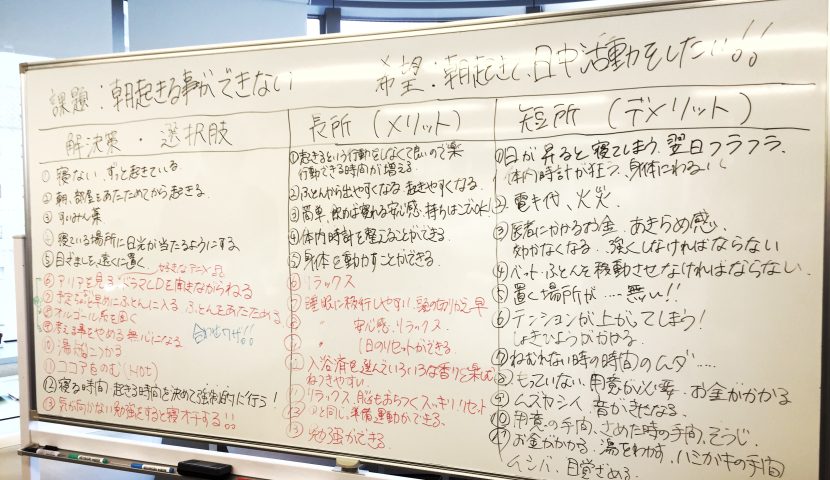 課題：朝起きる事ができない
希望：朝起きて、日中活動をしたい!!
解決策・選択肢
① 寝ない、ずっと起きている
② 朝、部屋をあたためてから起きる
③ すいみん薬
④ 寝ている場所に日光が当たるようにする
⑤ 目ざましを遠くに置く
好きなアニメ
⑥ アリアを見る ドラマCDを聞きながらねる
⑦ 予定より早めにふとんに入る、ふとんをあたためる
⑧ アルコール系を
⑨ 考える事をやめる 無心になる
合わせワザ!!
⑩ 湯船につかる
⑪ ココアをのむ(Hot)
⑫ 寝る時間、起きる時間を決めて強制的に行う!
⑬ 気が向かない勉強をすると寝オチする!!
長所（メリット）
①起きるという行動をしなくて良いので楽
行動できる時間が増える
②ふとんから出やすくなる 起きやすくなる
③簡単、飲めば寝れる安心感、持ちはこびOK!
④体内時計を整えることができる
⑤身体を動かすことができる
⑥リラックス
⑦睡眠に移行しやすい 頭の切りかえ早
〃 安心感、リラックス
〃 1日のリセットができる
入浴剤を選んでいろいろな香りを楽しむ
ねつきやすい
リラックス、脳もおちつくスッキリ!リセット
②と同じ、準備運動ができる
⑬ 勉強ができる
短所（デメリット）
①日が昇ると寝てしまう、翌日フラフラ
体内時計が狂う、身体にわるい
② 電キ代、火災
③医者にかかるお金、あきらめ感
効かなくなる 強くしなければならない
④ベット・ふとんを移動させなければならない
⑤置く場所が…無い!!
⑥テンションが上がってしまう!
しょきひようがかかる
⑦ねむれない時の時間のムダ……
⑧もっていない、用意が必要 お金がかかる
⑨ムズカシイ、音がきになる
⑩用意の手間、さめた時の手間、そうじ
⑪お金がかかる、湯をわかす、ハミガキの手間
ムシバ、目覚ざめる